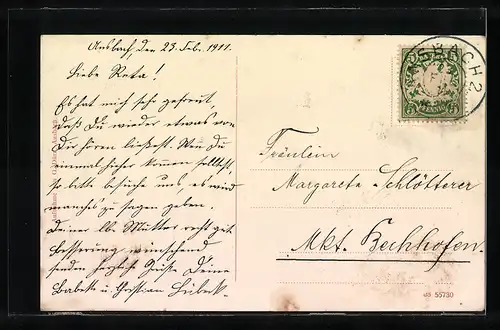 Ansbach, den 23. Feb. 1911.
Liebe Reta!
Es hat mich sehr gefreut,
daß Du wieder etwas von
Dir hören ließest. Wenn Du
einmal hieher kommen solltest,
so bitte besuche uns, es wird
manches zu sagen geben.
Deiner lb. Mutter recht gute
Besserung wünschend
senden herzliche Grüße Deine
Babett u. Christian Lübeck.
SBACH 2
BAYERN
Fräulein
Margareta Schlötterer
Mkt. Bechhofen.
JB 55730